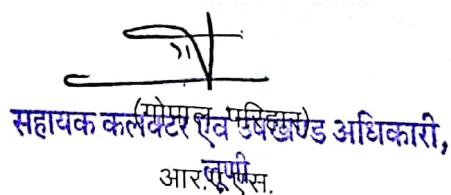 (गोपाल परिहार)
सहायक कलेक्टर एवं उपखण्ड अधिकारी,
आर.ए.एस.
लूणी